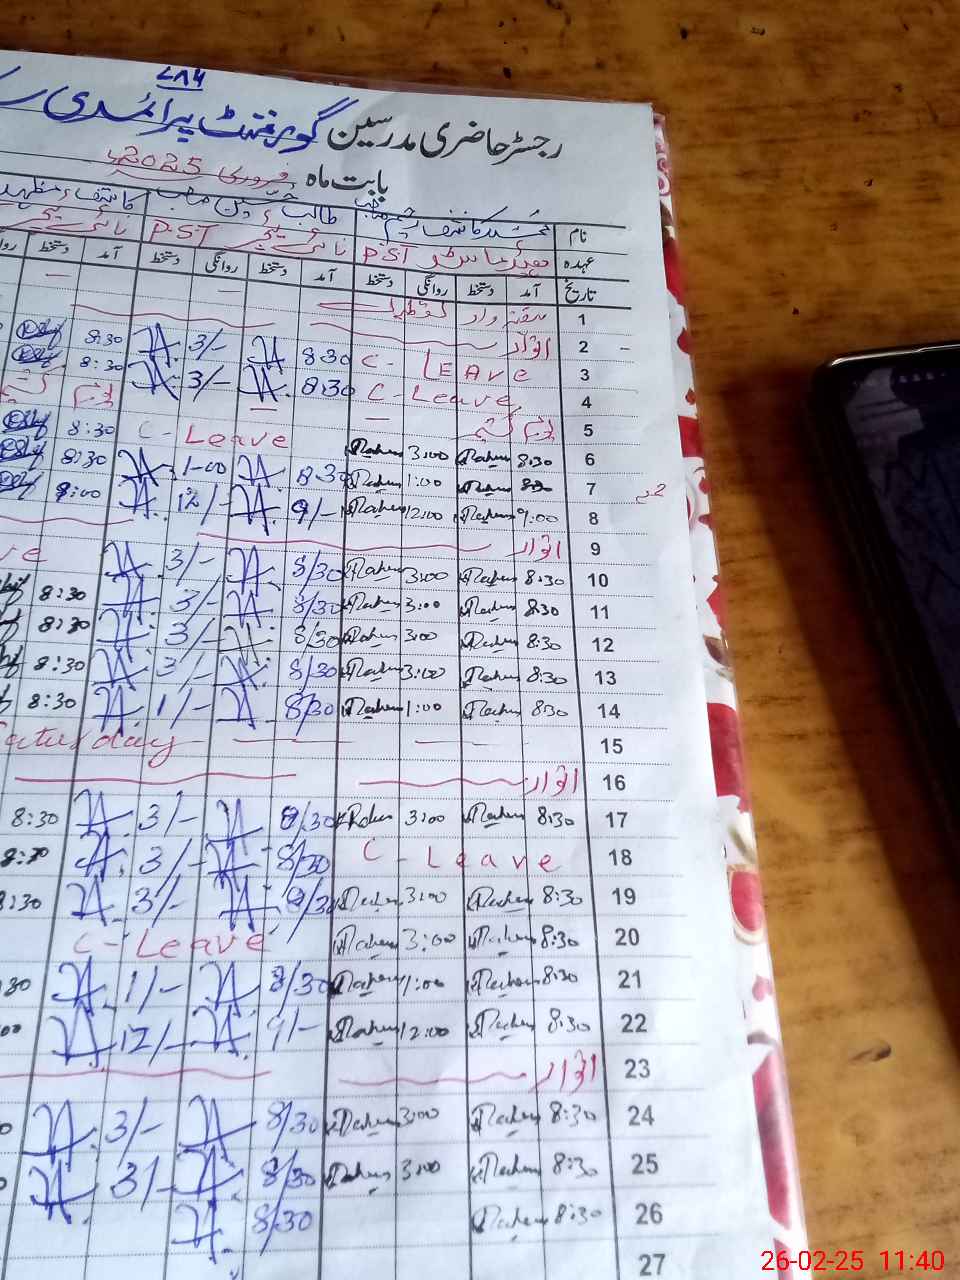 ۷۸۶
رجسٹر حاضری مدرسین گورنمنٹ پرائمری
بابت ماہ فروری 2025ء
نام محمد کاشف رحیم صاحب طالب حسین صاحب کاشف مظہر
عہدہ ہیڈ ماسٹر PST نائب ٹیچر PST نائب ٹیچر
تاریخ آمد دستخط روانگی دستخط آمد دستخط روانگی دستخط آمد دستخط
1 ہفتہ وار تعطیل
2 اتوار
3 C- LEAVE 8:30 3/- 8:30
4 C- Leave 8:30 3/- 8:30
5 یوم کشمیر یوم کشمیر
6 8:30 3:00 C- Leave 8:30
7 8:30 1:00 8:30 1-00 8:30
8 9:00 12:00 9/- 12/- 9:00
9 اتوار
10 8:30 3:00 8/30 3/- ve
11 8:30 3:00 8/30 3/- 8:30
12 8:30 3:00 8/30 3/- 8:30
13 8:30 3:00 8/30 3/- 8:30
14 8:30 1:00 8/30 1/- 8:30
15 Saturday
16 اتوار
17 8:30 3:00 8/30 3/- 8:30
18 C- Leave 8/30 3/- 8:30
19 8:30 3:00 8/30 3/- 8:30
20 8:30 3:00 C- Leave
21 8:30 1:00 8/30 1/- 30
22 8:30 12:00 9/- 12/- 00
23 اتوار
24 8:30 3:00 8/30 3/-
25 8:30 3:00 8/30 3/-
26 8:30 8/30
27
26-02-25 11:40